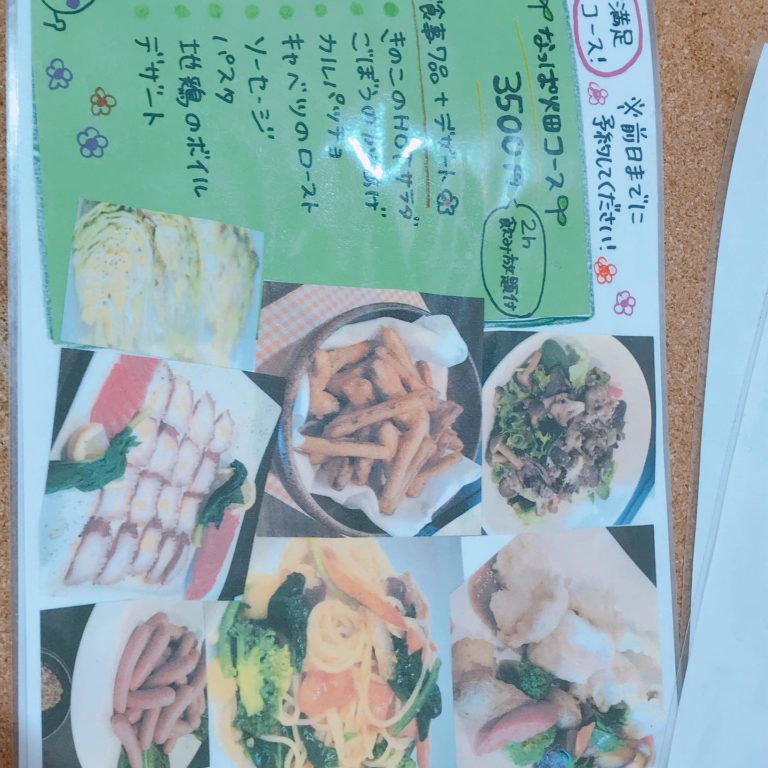 満足
コース!
※前日までに
予約してください!
なっぱ畑コース
3500円
2h
飲み放題付
食事7品+デザート
きのこのHOTサラダ
ごぼうのからあげ
カルパッチョ
キャベツのロースト
ソーセージ
パスタ
地鶏のボイル
デザート